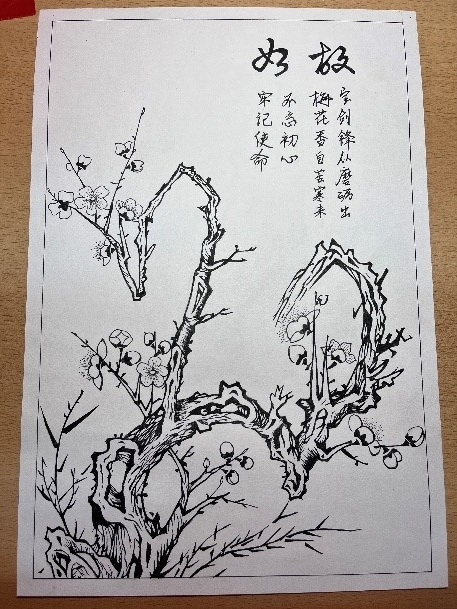 故如
宝剑锋从磨砺出
梅花香自苦寒来
不忘初心
牢记使命